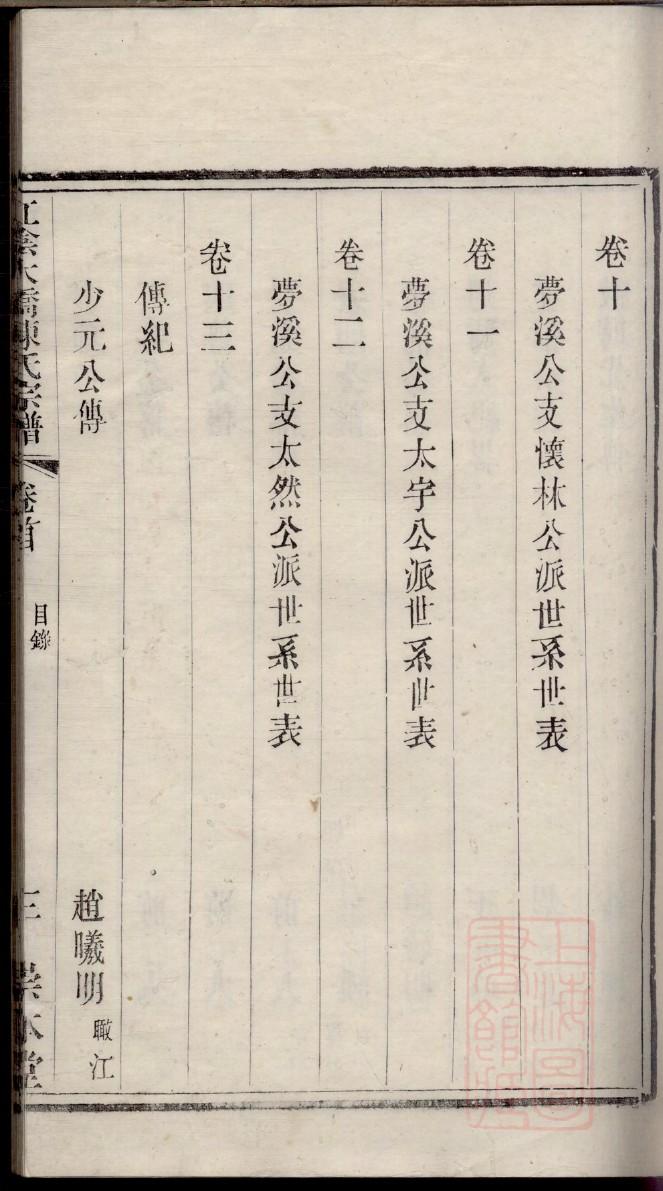 卷十
夢溪公支懷林公派世系世表
卷十一
夢溪公支太宇公派世系世表
卷十二
夢溪公支太然公派世系世表
卷十三
傳紀
少元公傳 趙曦明 瞰江
江陰大橋陳氏宗譜 卷首 目錄 三 崇本堂
上海圖書館藏